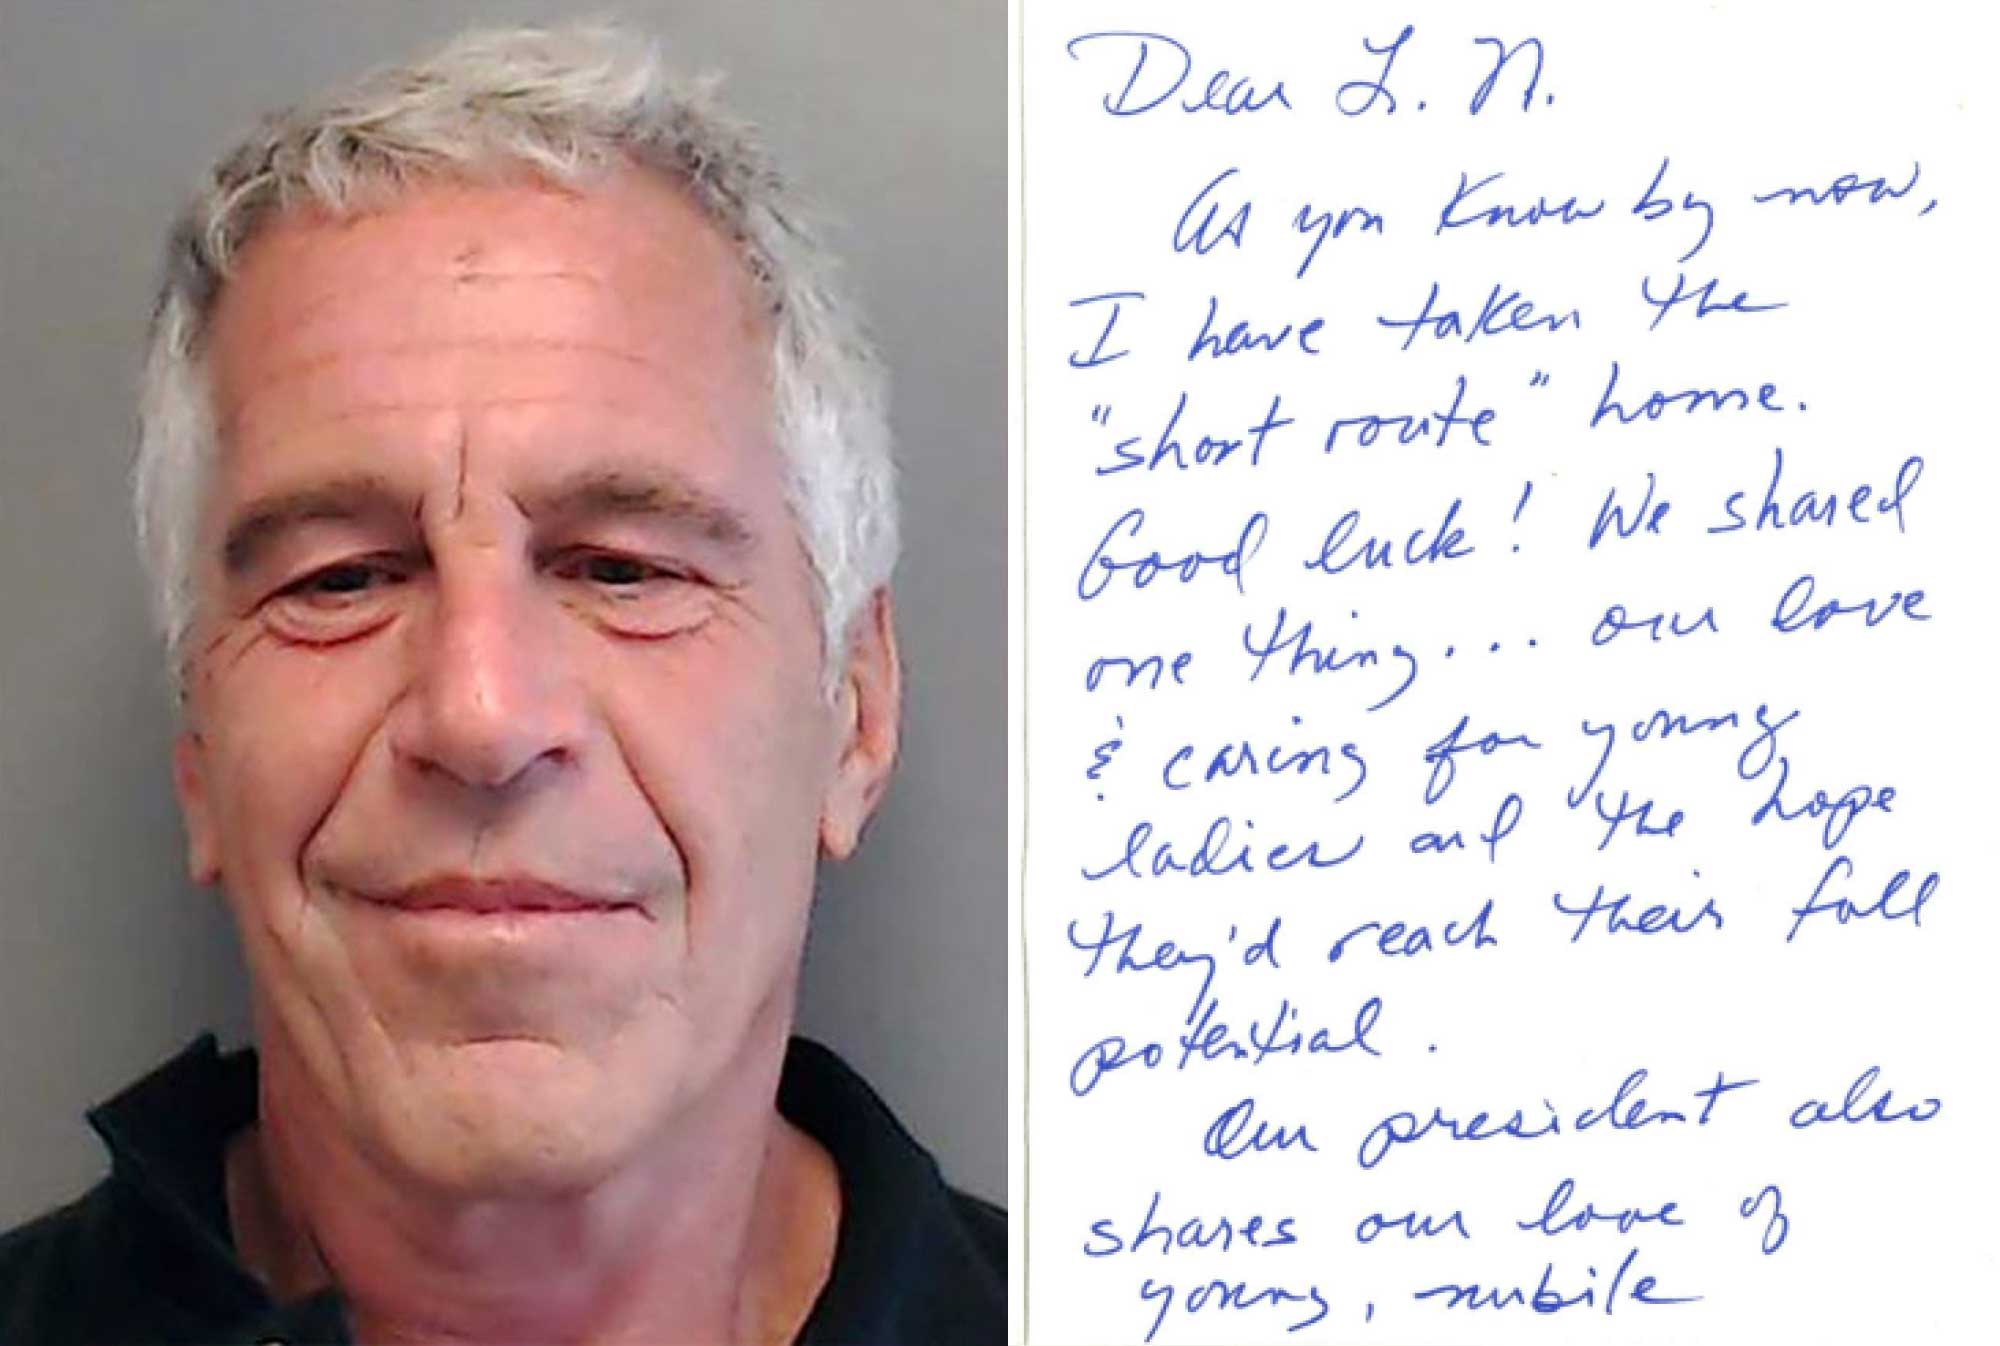 Dear L. N.
As you know by now,
I have taken the
"short route" home.
Good luck! We shared
one thing... our love
& caring for young
ladies and the hope
they'd reach their full
potential.
Our president also
shares our love of
young, nubile